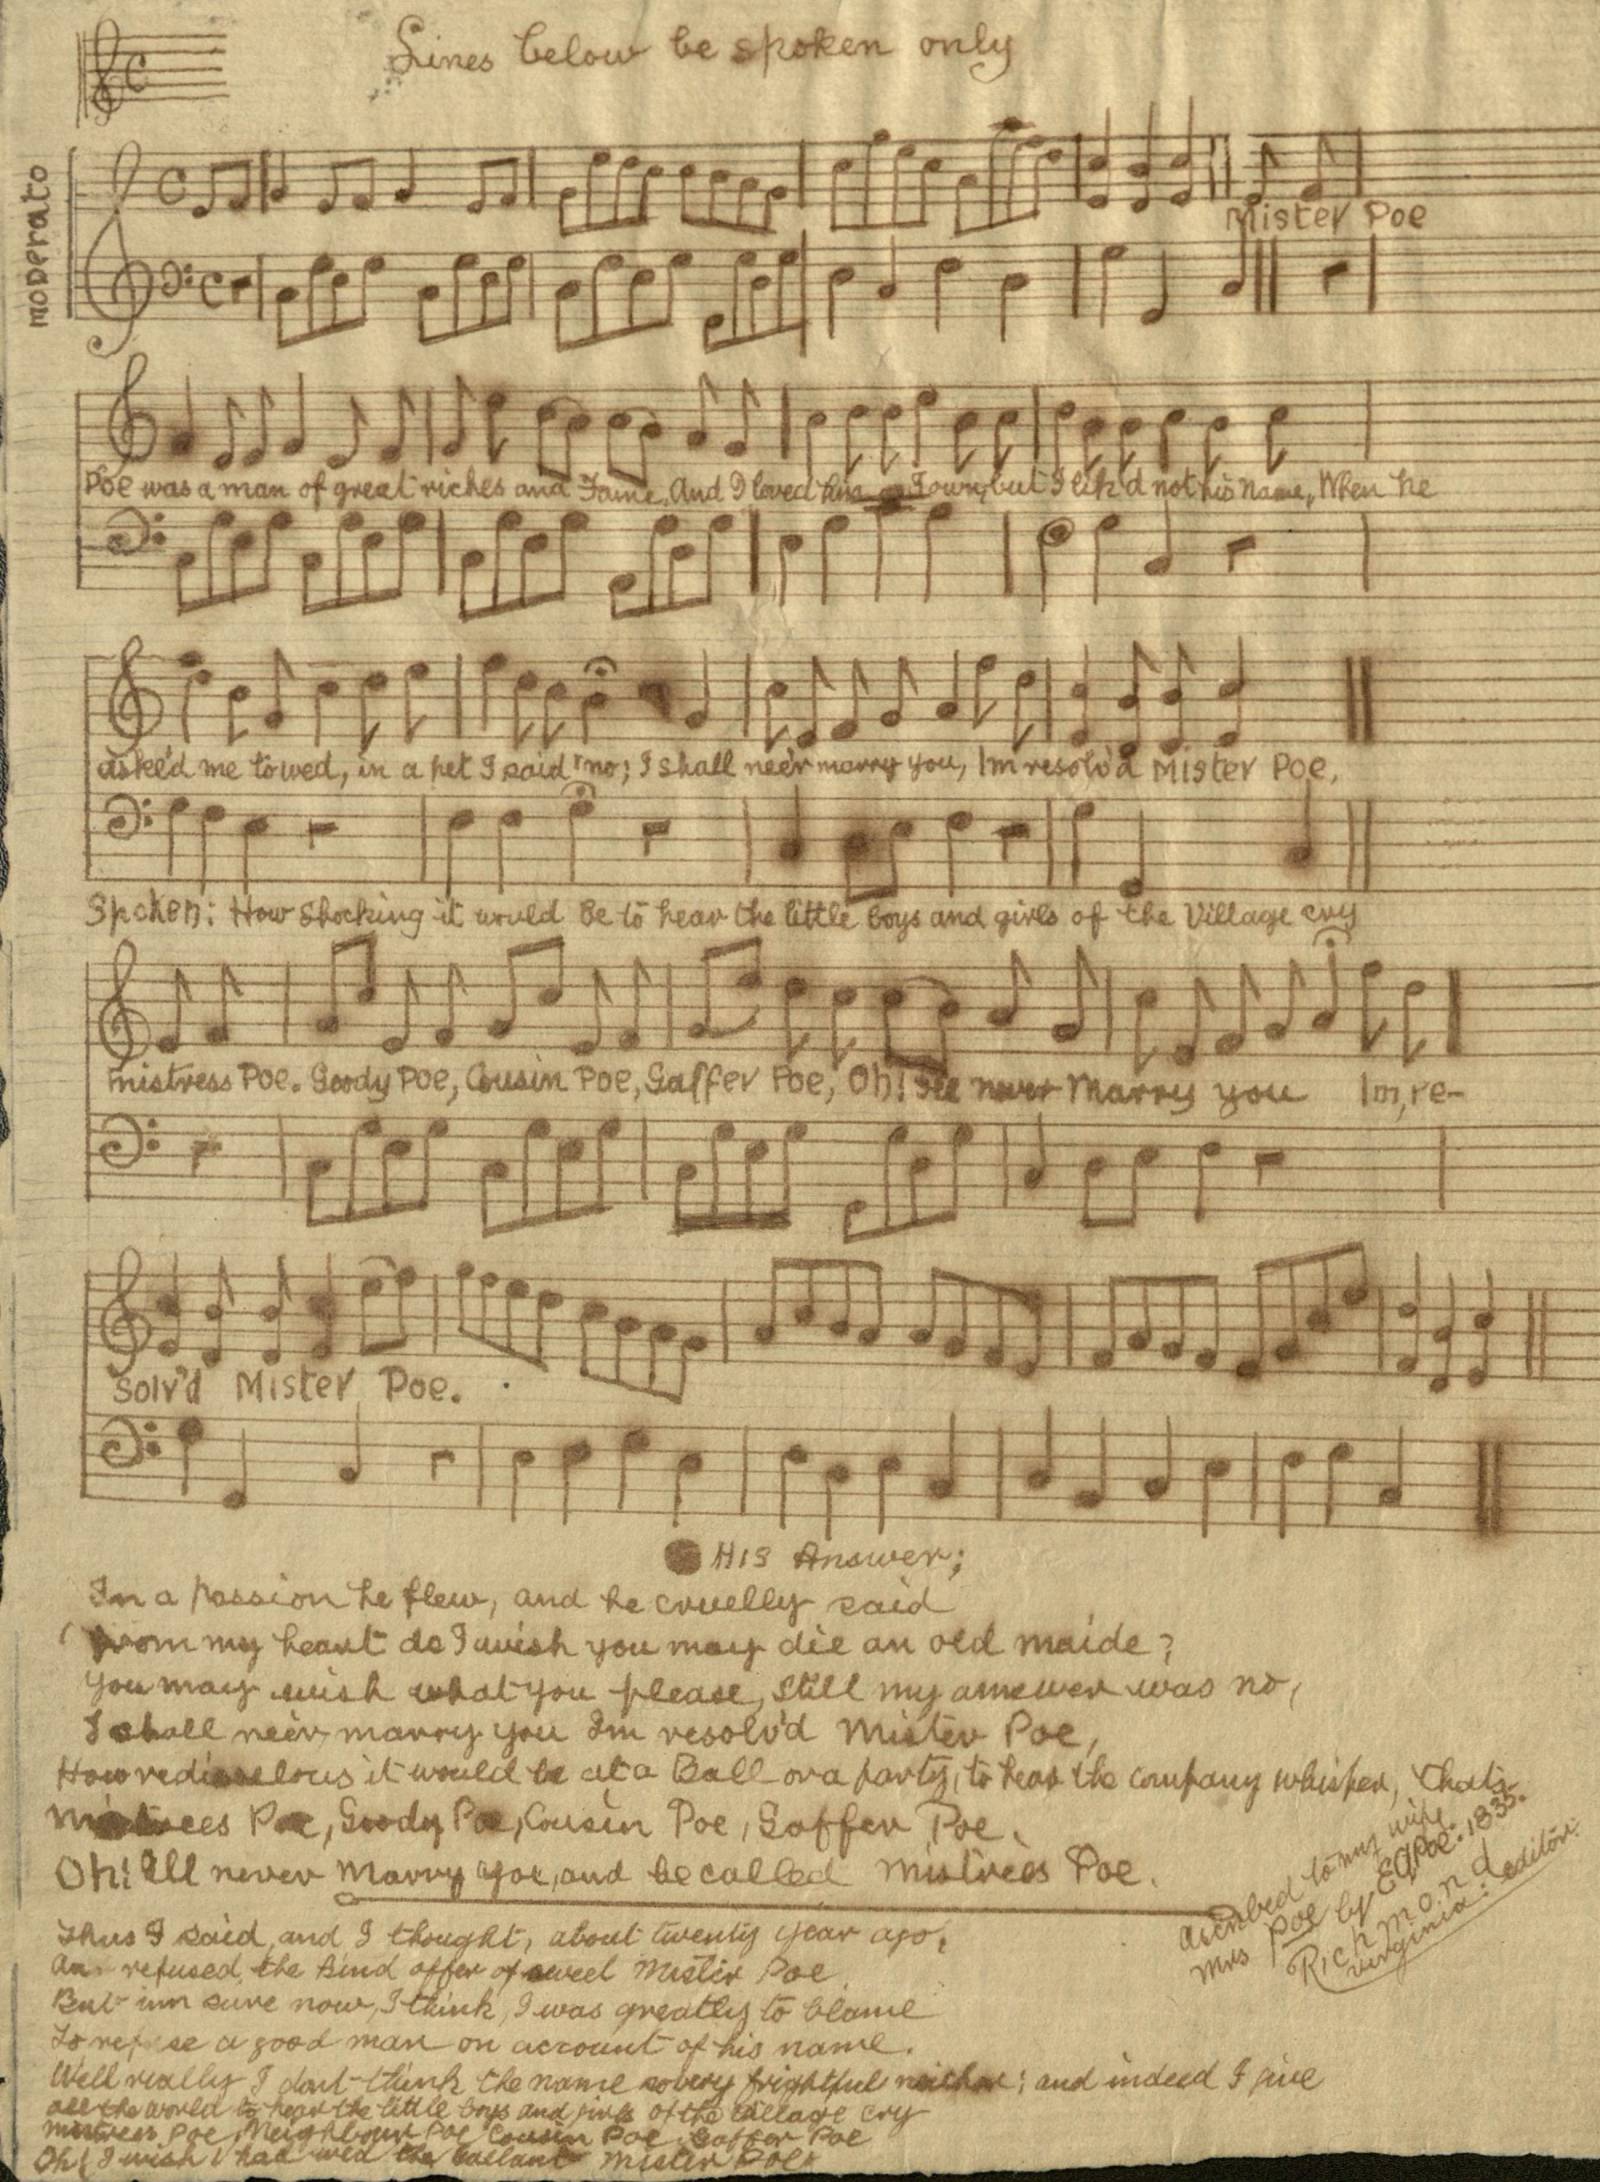 Lines below be spoken only
moderato
Mister Poe
Poe was a man of great riches and Fame, And I loved his Town, but I lik'd not his name, When he
asked me to wed, in a pet I said no; I shall neer marry you, Im resolv'd Mister Poe,
Spoken: How Shocking it would Be to hear the little boys and girls of the Village cry
mistress Poe. Goody Poe, Cousin Poe, Gaffer Poe, Oh! Ile never Marry you Im, re-
Solv'd Mister Poe.
His Answer;
In a passion he flew, and he cruelly said
from my heart do I wish you may die an old maide?
You may wish what you please, Still my answer was no,
I shall neer marry you Im resolv'd Mister Poe,
How rediculous it would be at a Ball or a party, to hear the Company whisper, thats
Mistrees Poe, Goody Poe, Cousin Poe, Gaffer Poe.
Oh! Ill never Marry You, and be called Mistrees Poe.
ascribed to my wife
Mrs Poe by EAPoe. 1835.
Richmond
virginia: editor.
Thus I said, and I thought, about twenty year ago,
An refused the kind offer of sweet Mister Poe.
But im sure now, I think, I was greatly to blame
To refuse a good man on account of his name.
Well really I dont think the name so very frightful neither; and indeed I give
all the world to hear the little boys and girls of the Village cry
mistress Poe, Neighbour Poe Cousin Poe, Gaffer Poe
Oh! I wish I had wed the Gallant Mister Poe.